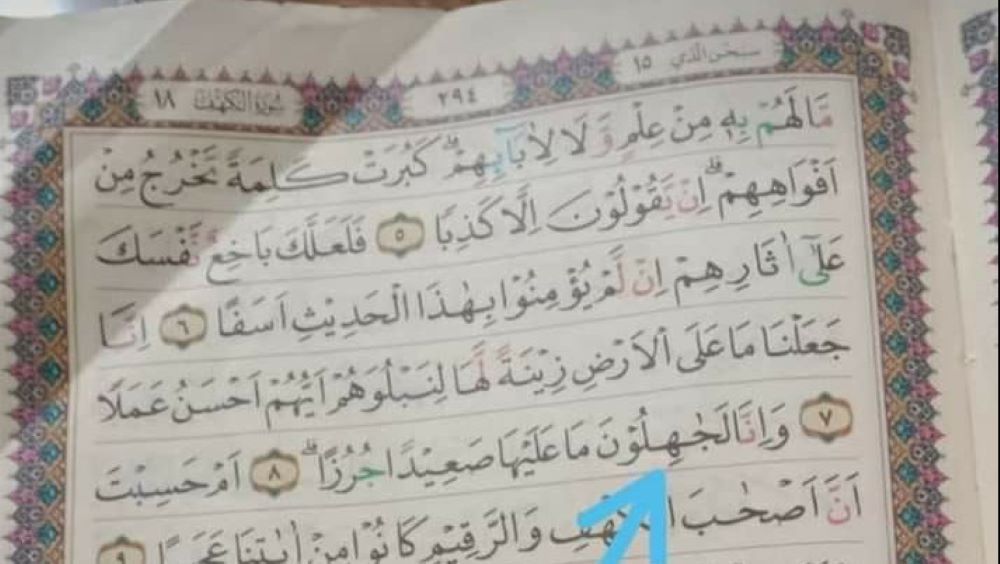 سبحن الذي ١٥
٢٩٤
سورة الكهف ١٨
مَّا لَهُمْ بِهٖ مِنْ عِلْمٍ وَّلَا لِاٰبَاۤىِٕهِمْۗ كَبُرَتْ كَلِمَةً تَخْرُجُ مِنْ
اَفْوَاهِهِمْۗ اِنْ يَّقُوْلُوْنَ اِلَّا كَذِبًا ٥ فَلَعَلَّكَ بَاخِعٌ نَّفْسَكَ
عَلٰٓى اٰثَارِهِمْ اِنْ لَّمْ يُؤْمِنُوْا بِهٰذَا الْحَدِيْثِ اَسَفًا ٦ اِنَّا
جَعَلْنَا مَا عَلَى الْاَرْضِ زِيْنَةً لَّهَا لِنَبْلُوَهُمْ اَيُّهُمْ اَحْسَنُ عَمَلًا
٧ وَاِنَّا لَجٰهِلُوْنَ مَا عَلَيْهَا صَعِيْدًا جُرُزًاۗ ٨ اَمْ حَسِبْتَ
اَنَّ اَصْحٰبَ وَالرَّقِيْمِ كَانُوْا مِنْ اٰيٰتِنَا عَجَبًا ٩